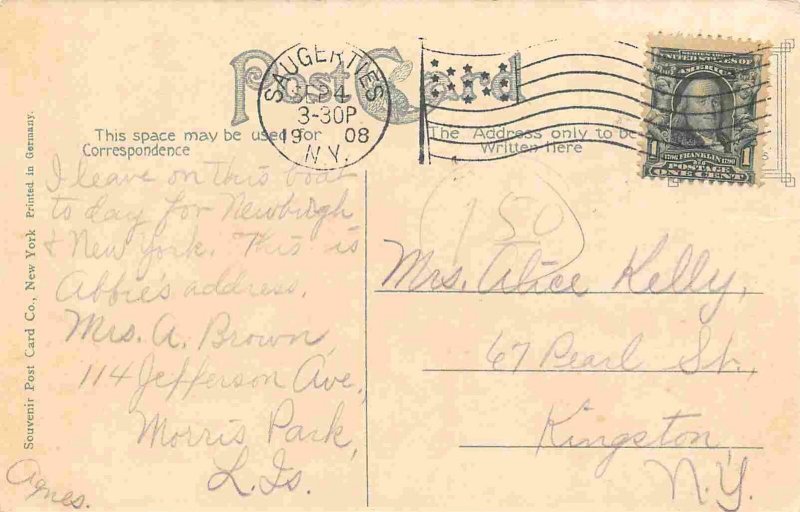 Post Card
SAUGERTIES
SEP 4
3-30P
19 08
N.Y.
UNITED STATES OF
AMERICA
1 1
1706 FRANKLIN 1790
POSTAGE
ONE CENT
This space may be used for
Correspondence
The Address only to be
Written Here
I leave on this boat
to day for Newburgh
& New York. This is
Abbie's address.
Mrs. A. Brown
114 Jefferson Ave,
Morris Park,
L. Is.
Agnes.
150
Mrs. Alice Kelly,
67 Pearl St.,
Kingston,
N.Y.
Souvenir Post Card Co., New York Printed in Germany.